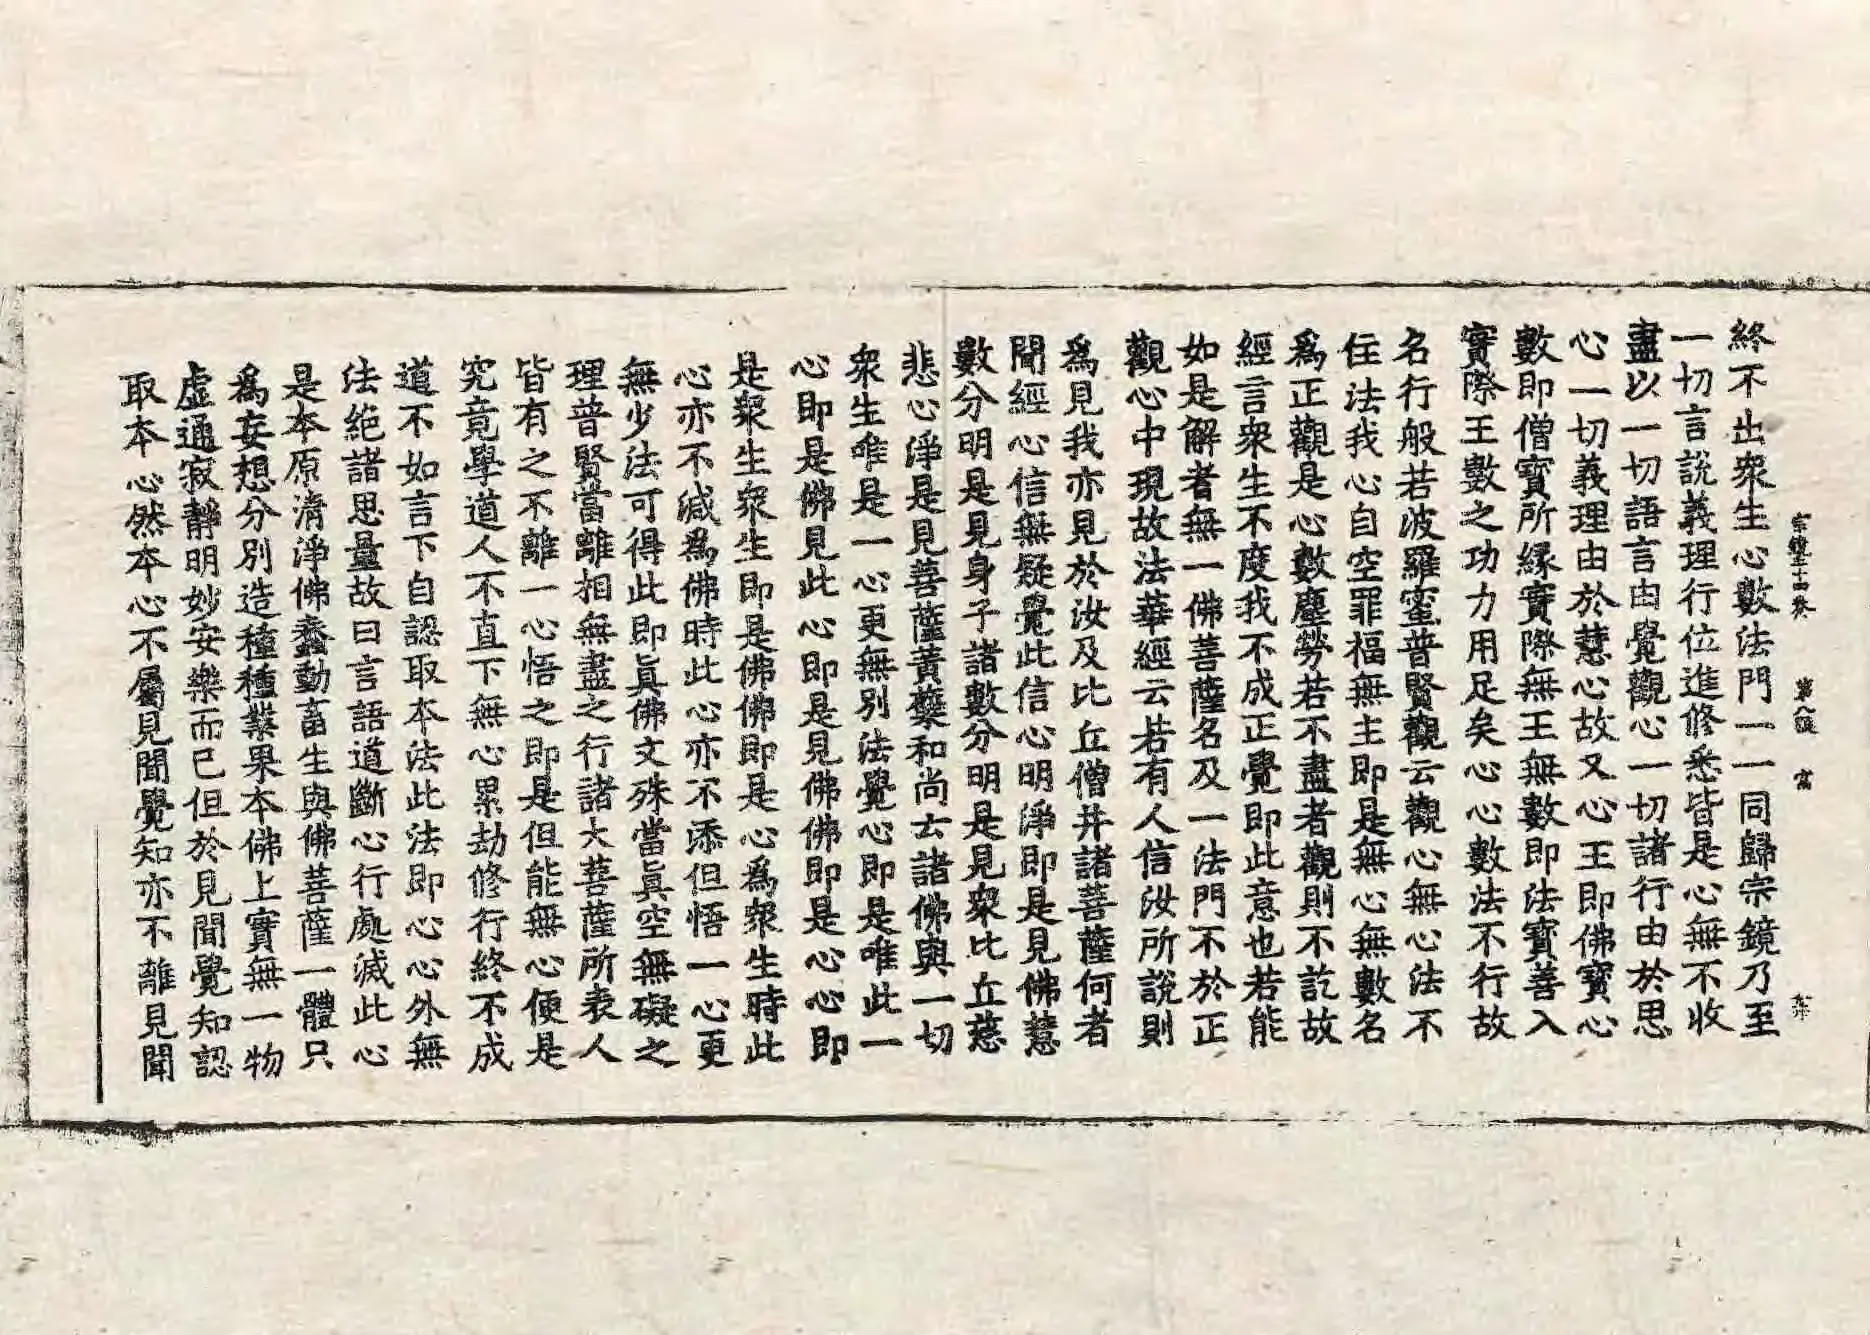 宗鏡二十四卷 第八張 富
終不出衆生心數法門一一同歸宗鏡乃至
一切言說義理行位進修悉皆是心無不收
盡以一切語言由覺觀心一切諸行由於思
心一切義理由於慧心故又心王即佛寶心
數即僧寶所緣實際無王無數即法寶善入
實際王數之功力用足矣心心數法不行故
名行般若波羅蜜普賢觀云觀心無心法不
住法我心自空罪福無主即是無心無數名
爲正觀是心數塵勞若不盡者觀則不訖故
經言衆生不度我不成正覺即此意也若能
如是解者無一佛菩薩名及一法門不於正
觀心中現故法華經云若有人信汝所說則
爲見我亦見於汝及比丘僧并諸菩薩何者
聞經心信無疑覺此信心明淨即是見佛慧
數分明是見身子諸數分明是見衆比丘慈
悲心淨是見菩薩黃蘗和尚云諸佛與一切
衆生唯是一心更無別法覺心即是唯此一
心即是佛見此心即是見佛佛即是心心即
是衆生衆生即是佛佛即是心爲衆生時此
心亦不減爲佛時此心亦不添但悟一心更
無少法可得此即眞佛文殊當眞空無礙之
理普賢當離相無盡之行諸大菩薩所表人
皆有之不離一心悟之即是但能無心便是
究竟學道人不直下無心累劫修行終不成
道不如言下自認取本法此法即心心外無
法絕諸思量故曰言語道斷心行處滅此心
是本原清淨佛蠢動畜生與佛菩薩一體只
爲妄想分別造種種業果本佛上實無一物
虛通寂靜明妙安樂而已但於見聞覺知認
取本心然本心不屬見聞覺知亦不離見聞